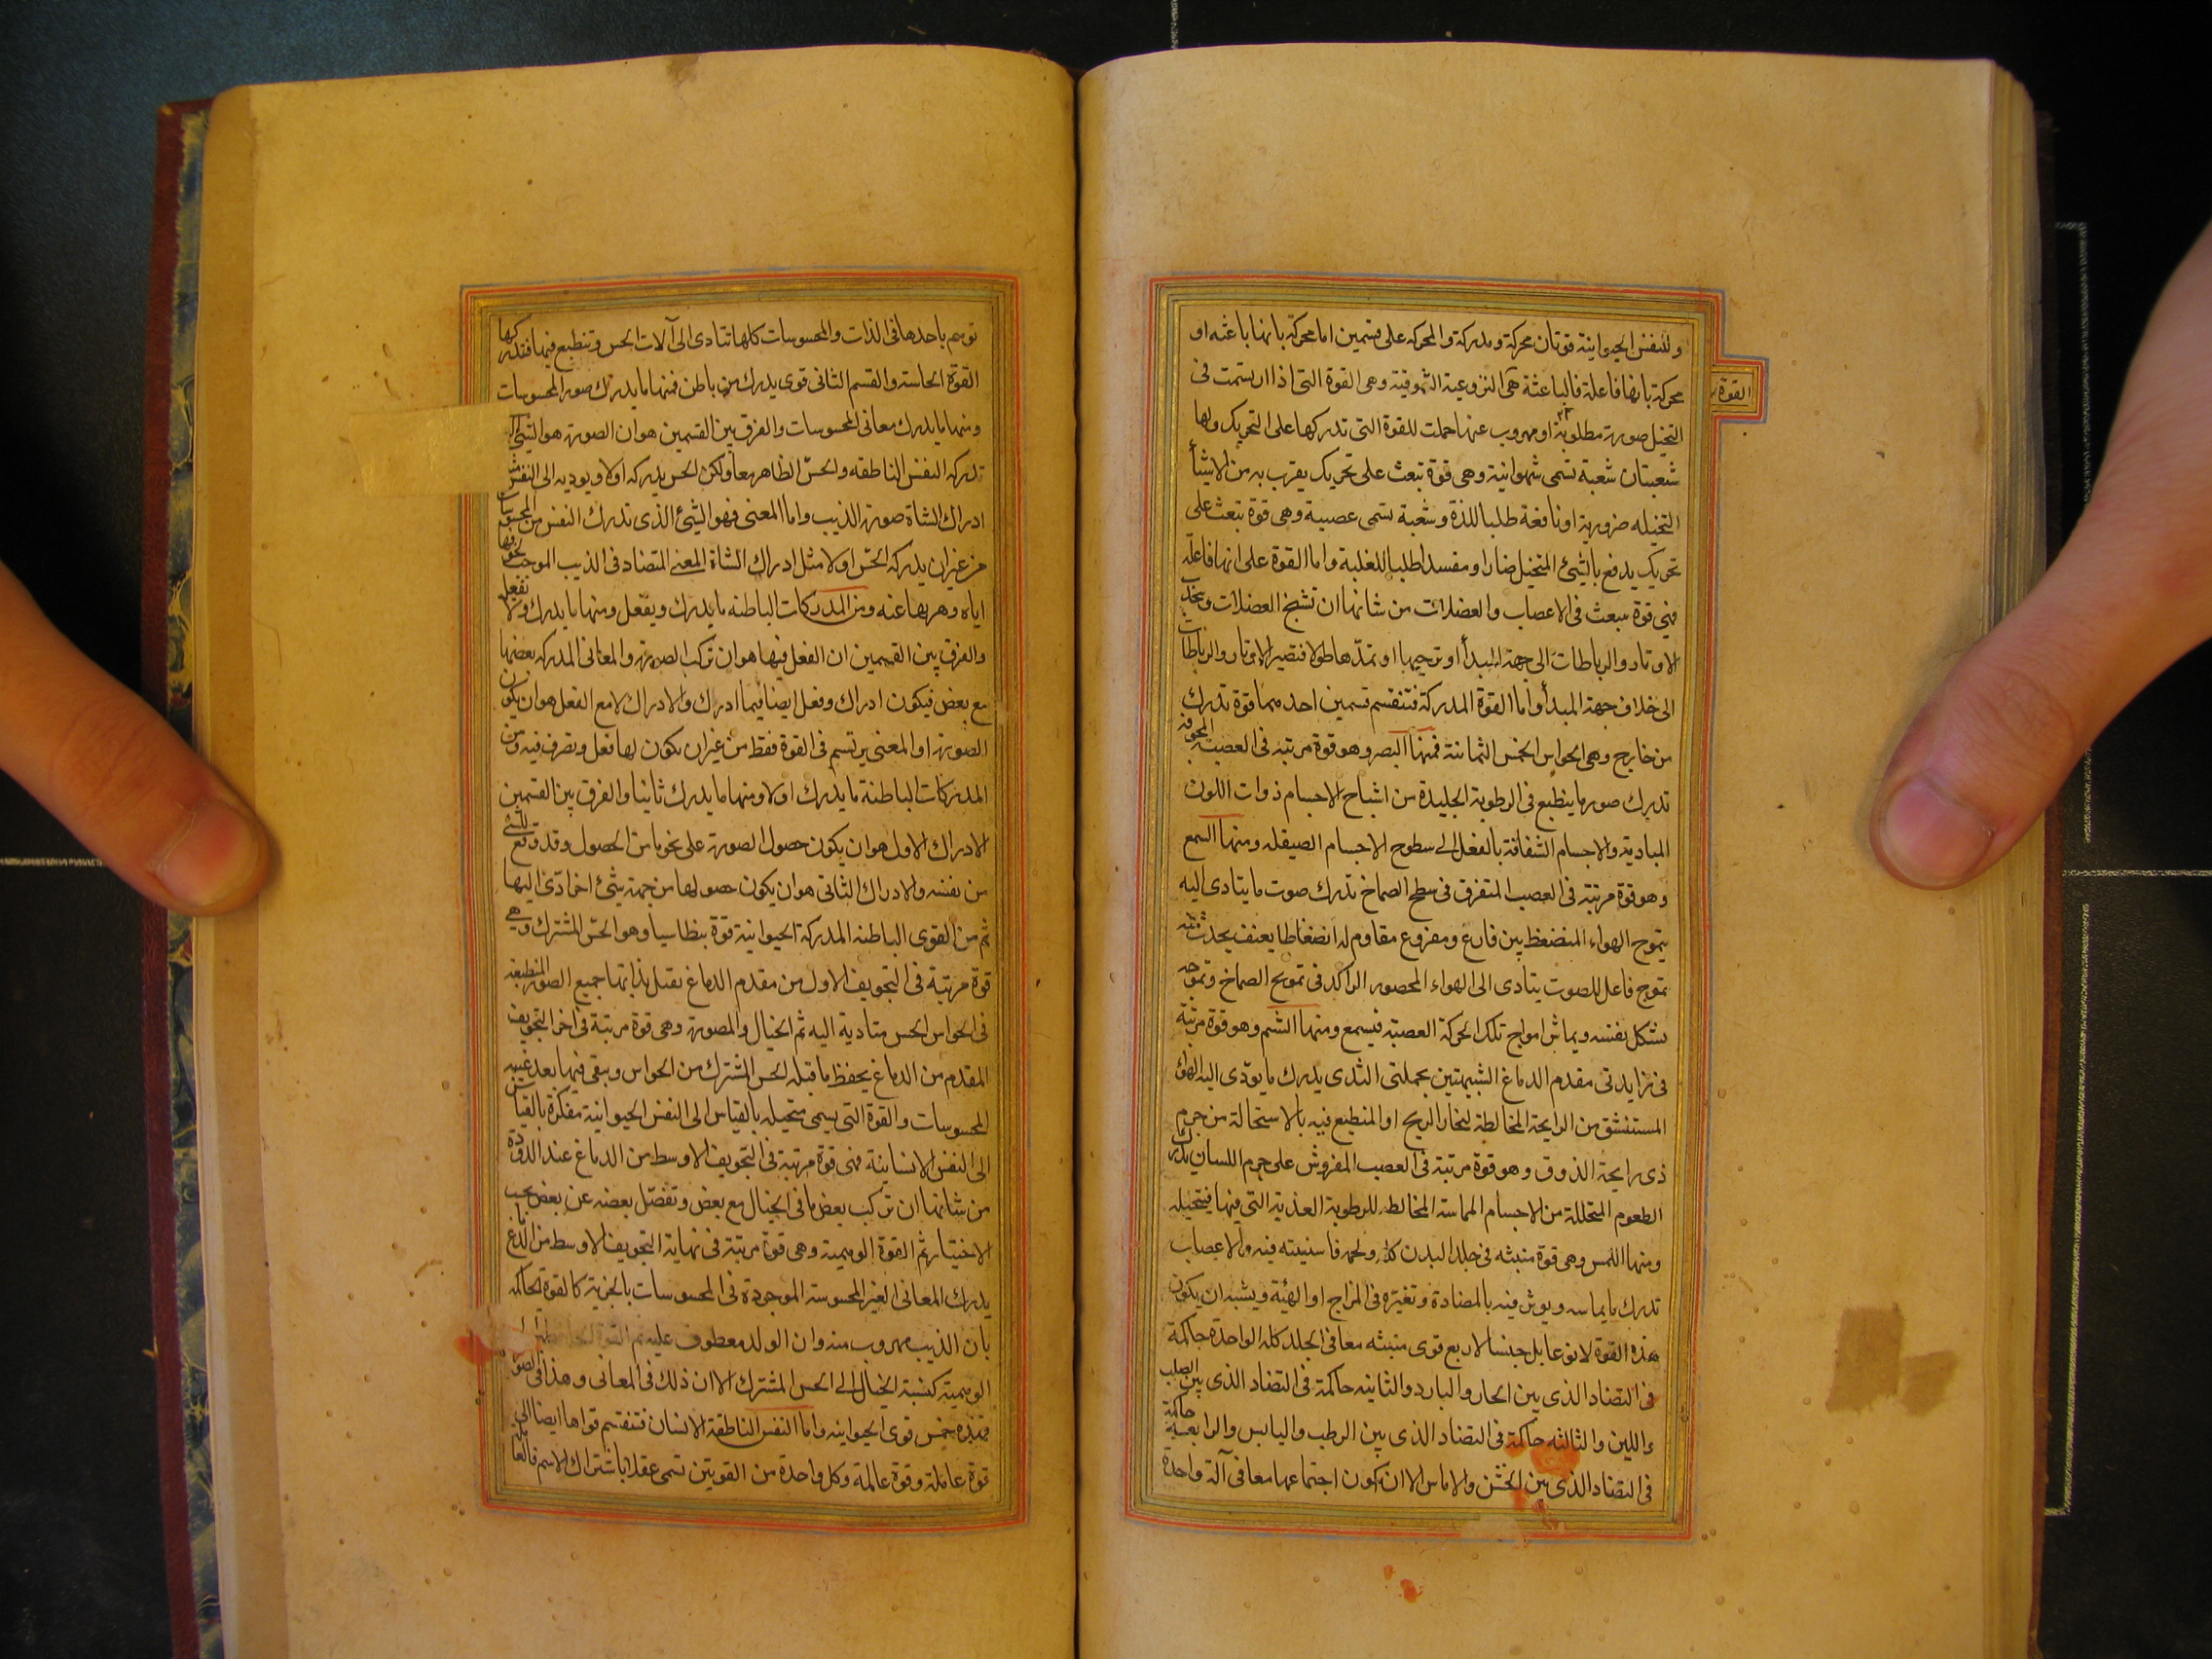 وللنفس الحيوانية قوتان محركة ومدركة والمحركه على قسمين اما محركة بانها باعثه او
محركة بانها فاعلة فالباعثة هى النزوعية الشوقية وهى القوة التى اذا ارتسمت فى
القوة
التخيل صورة مطلوبة او مهروب عنها حملت للقوة التى تدركها على التحريك ولها
شعبتان شعبة تسمى شهوانية وهى قوة تبعث على تحريك يقرب به من الاشيأ
المتخيله ضرورية او نافعة طلبا للذة وشعبة تسمى عصبية وهى قوة تبعث على
تحريك يدفع بالشئ المتخيل ضارا او مفسدا طلبا للغلبة واما القوة على انها فاعلة
فهى قوة تبعث فى الاعصاب والعضلات من شانها ان تشنج العضلات
الاوتار والرباطات الى جهة المبدأ او ترخيها او تمدها طولا فتصير الاوتار والرباطات
الى خلاف جهة المبدأ واما القوة المدركة فتنقسم قسمين احدهما قوة تدرك
من خارج وهى الحواس الخمس الثمانية فمنها البصر وهو قوة مرتبة فى العصبة المجوفة
تدرك صورة ما ينطبع فى الرطوبة الجليدة من اشباح الاجسام ذوات اللون
المبادية والاجسام الشفافة بالفعل الى سطوح الاجسام الصيقله ومنها السمع
وهو قوة مرتبة فى العصب المتفرق فى سطح الصماخ تدرك صوت ما يتادى اليه
بتموج الهواء المنضغط بين قارع ومقروع مقاوم له انضغاطا بعنف يحدث منه
تموج فاعل للصوت يتادى الى الهواء المحصور الراكد فى تمويج الصماخ وتموجه
بشكل نفسه ويماش امواج تلك الحركة العصبة فيسمع ومنها الشم وهو قوة مرتبة
فى زايدتى مقدم الدماغ الشبيهتين بحملتى الثدى يدرك ما يودى اليه الهواء
المستنشق من الرايحة المخالطة لبخار الريح او المنطبع فيه بالاستحالة من جرم
ذى رايحة الذوق وهو قوة مرتبة فى العصب المفروش على جرم اللسان يدرك
الطعوم المتحللة من الاجسام المماسة المخالطة للرطوبة العذبة التى فيها فتحيله
ومنها اللمس وهى قوة منبثه فى جلد البدن كله ولحمه فاسنيته فيه والاعصاب
تدرك ما يماسه ويوثر فيه بالمضادة وتغيره فى المزاج او الهيئة ويشبه ان يكون
هذه القوة لا نوعا بل جنسا لاربع قوى منبثه معا فى الجلد كله الواحدة حاكمة
فى التضاد الذى بين الحار والبارد والثانية حاكمة فى التضاد الذى بين الصلب
واللين والثالثه حاكمة فى التضاد الذى بين الرطب واليابس والرابعة حاكمة
فى التضاد الذى بين الخشن والاملس الا ان كون اجتماعها معا فى آلة واحدة
توهم باحدها فى الذات والمحسوسات كلها تتادى الى آلات الحس وتنطبع فيها فتدركها
القوة الحاسة والقسم الثانى قوى يدرك من باطن فمنها ما يدرك صور المحسوسات
ومنها ما يدرك معانى المحسوسات والفرق بين القسمين هو ان الصورة هو الشئ
تدركه النفس الناطقه والحس الظاهر معا ولكن الحس يدركه اولا ويوديه الى النفس مثل
ادراك الشاة صورة الذيب واما المعنى فهو الشئ الذى تدرك النفس من المحسوسات
من غير ان يدركه الحس اولا مثل ادراك الشاة المعنى المتضاد فى الذيب الموجب لخوفها
اياه وهربها عنه ومن المدركات الباطنه ما يدرك ويفعل ومنها ما يدرك ولا تفعل
والفرق بين القسمين ان الفعل فيها هو ان تركب الصورة والمعانى المدركه بعضها
مع بعض فيكون ادراك وفعل ايضا فيما ادرك والادراك لا مع الفعل هو ان يكون
الصورة او المعنى يرتسم فى القوة فقط من غير ان يكون لها فعل وتصرف فيه ومن
المدركات الباطنة ما يدرك اولا ومنها ما يدرك ثانيا والفرق بين القسمين
الادراك الاول هو ان يكون حصول الصورة على نحو ما من الحصول وقد وقع للشئ
من نفسه والادراك الثانى هو ان يكون حصولها من جهة شئ اخر ادّى اليها
ثم من القوى الباطنه المدركة الحيوانية قوة بنطاسيا وهو الحس المشترك وهى
قوة مرتبة فى التجويف الاول من مقدم الدماغ تقبل بذاتها جميع الصور المنطبعة
فى الحواس الخمس متادية اليه ثم الخيال والمصورة وهى قوة مرتبة فى اخر التجويف
المقدم من الدماغ يحفظ ما قبله الحس المشترك من الحواس ويبقى فيها بعد غيبة
المحسوسات والقوة التى يسمى متخيله بالقياس الى النفس الحيوانية مفكرة بالقياس
الى النفس الانسانية فهى قوة مرتبة فى التجويف الاوسط من الدماغ عند الدودة
من شانها ان تركب بعض ما فى الخيال مع بعض وتفصل بعضه عن بعض بحسب
الاختيار ثم القوة الوهمية وهى قوة مرتبة فى نهاية التجويف الاوسط من الدماغ
يدرك المعانى الغير المحسوسة الموجودة فى المحسوسات بالجزية كالقوة الحاكمه
بان الذيب مهروب منه وان الولد معطوف عليه ثم القوة
الوهمية كنسبة الخيال الى الحس المشترك الا ان ذلك فى المعانى وهذا فى الصور
فهذه خمس قوى الحيوانيه واما النفس الناطقة الانسان فتنقسم قواها ايضا الى
قوة عاملة وقوة عالمة وكل واحدة من القوتين تسمى عقلا باشتراك الاسم فالعا